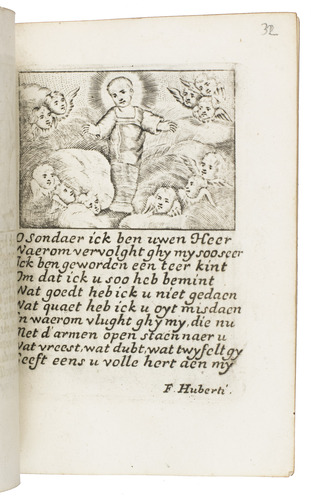 32
O Sondaer ick ben uwen Heer
Waerom vervolght ghy my soo seer
Ick ben geworden een teer kint
Om dat ick u soo heb bemint
Wat goedt heb ick u niet gedaen
Wat quaet heb ick u oyt misdaen
En waerom vlught ghy my, die nu
Met d'armen open staen naer u
Wat vreest, wat dubt, wat twyfelt gy
Geeft eens u volle hert aen my
F. Huberti.